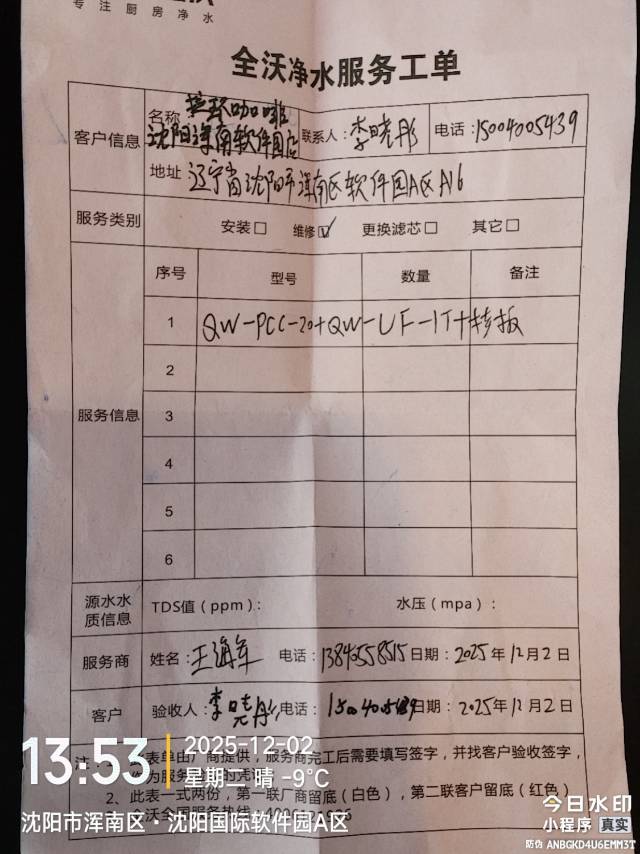 专注厨房净水
全沃净水服务工单
客户信息
名称
咖啡
沈阳浑南软件园店
联系人：李晓彤
电话：15004005439
地址 辽宁省沈阳市浑南区软件园A区A16
服务类别
安装□ 维修☑ 更换滤芯□ 其它□
服务信息
序号 型号 数量 备注
1 QW-PCC-20+QW-UF-1T+转板
2
3
4
5
6
源水水
质信息
TDS值（ppm）： 水压（mpa）：
服务商 姓名：王海军 电话：13840558515 日期：2025年12月2日
客户 验收人：李晓彤 电话：15004005439 日期：2025年12月2日
注：1、此表单由厂商提供，服务商完工后需要填写签字，并找客户验收签字，
作为服务 的凭
2、此表一式两份，第一联厂商留底（白色），第二联客户留底（红色）
沃全国服务热线：400
13:53
2025-12-02
星期二 晴 -9℃
沈阳市浑南区·沈阳国际软件园A区
今日水印
小程序 真实
防伪 ANBGKD4U6EMM3T